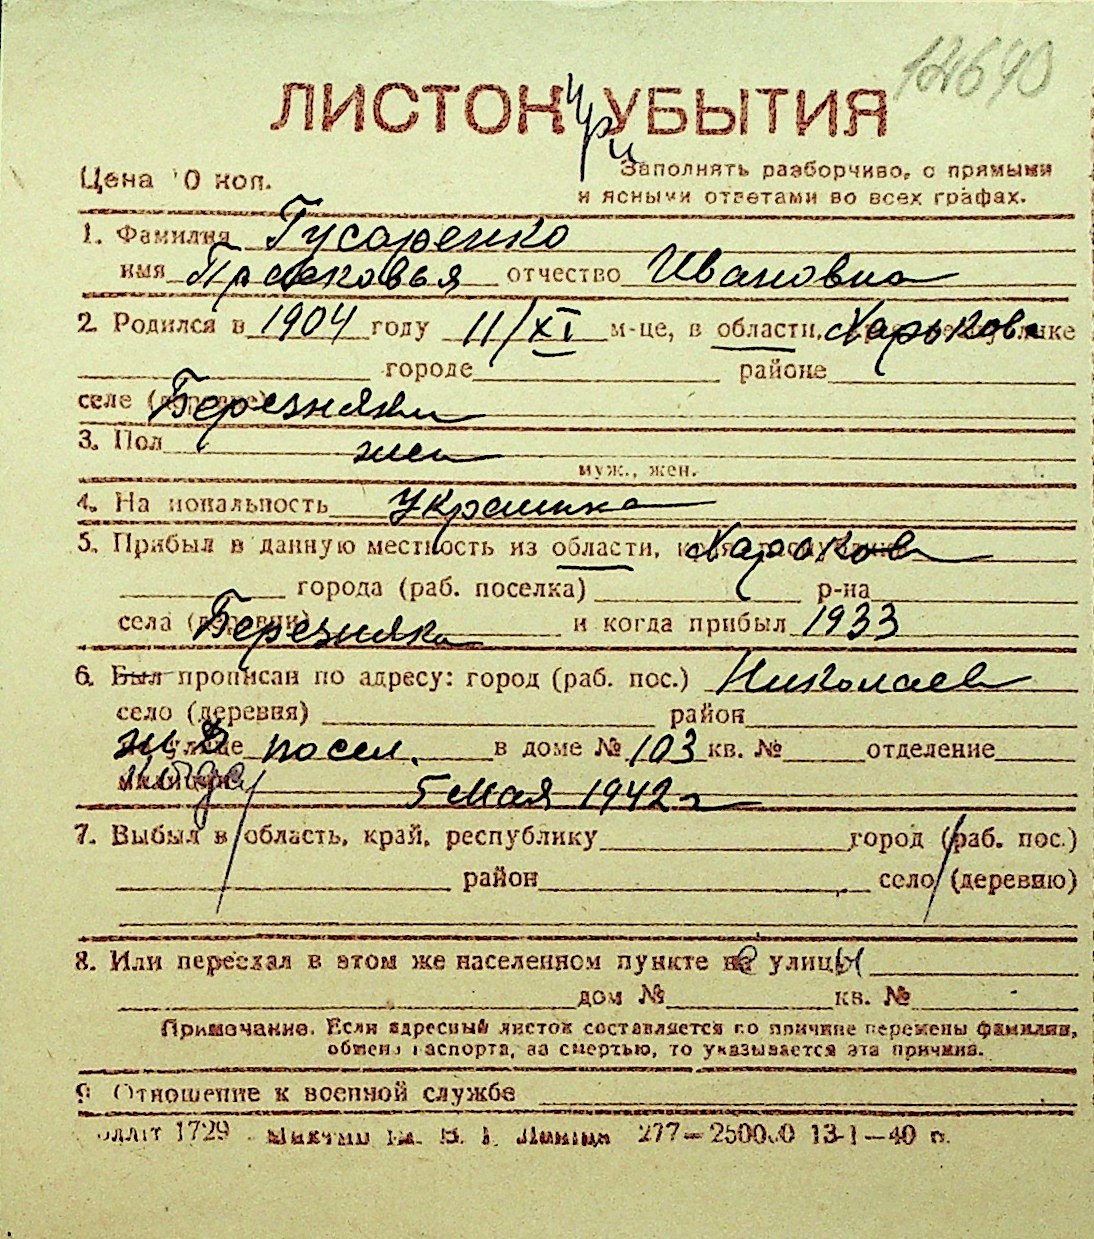 12690
ЛИСТОК при УБЫТИЯ
Цена 10 коп.
Заполнять разборчиво, с прямыми
и ясными ответами во всех графах.
1. Фамилия Гусаренко
имя Прасковья отчество Ивановна
2. Родился в 1904 году 11/XI м-це, в области, Харьков
городе районе
селе (деревне) Березняки
3. Пол жен
муж., жен.
4. Национальность Украинка
5. Прибыл в данную местность из области, Харьков
города (раб. поселка) р-на
села (деревни) Березняки и когда прибыл 1933
6. Был прописан по адресу: город (раб. пос.) Николаев
село (деревня) район
посел. в доме № 103 кв. № отделение
5 мая 1942 г
7. Выбыл в область, край, республику город (раб. пос.)
район село (деревню)
8. Или переехал в этом же населенном пункте улицы
дом № кв. №
Примечание. Если адресный листок составляется по причине перемены фамилии,
обмена паспорта, за смертью, то указывается эта причина.
9. Отношение к военной службе
1729 277—250000 13-1—40 г.